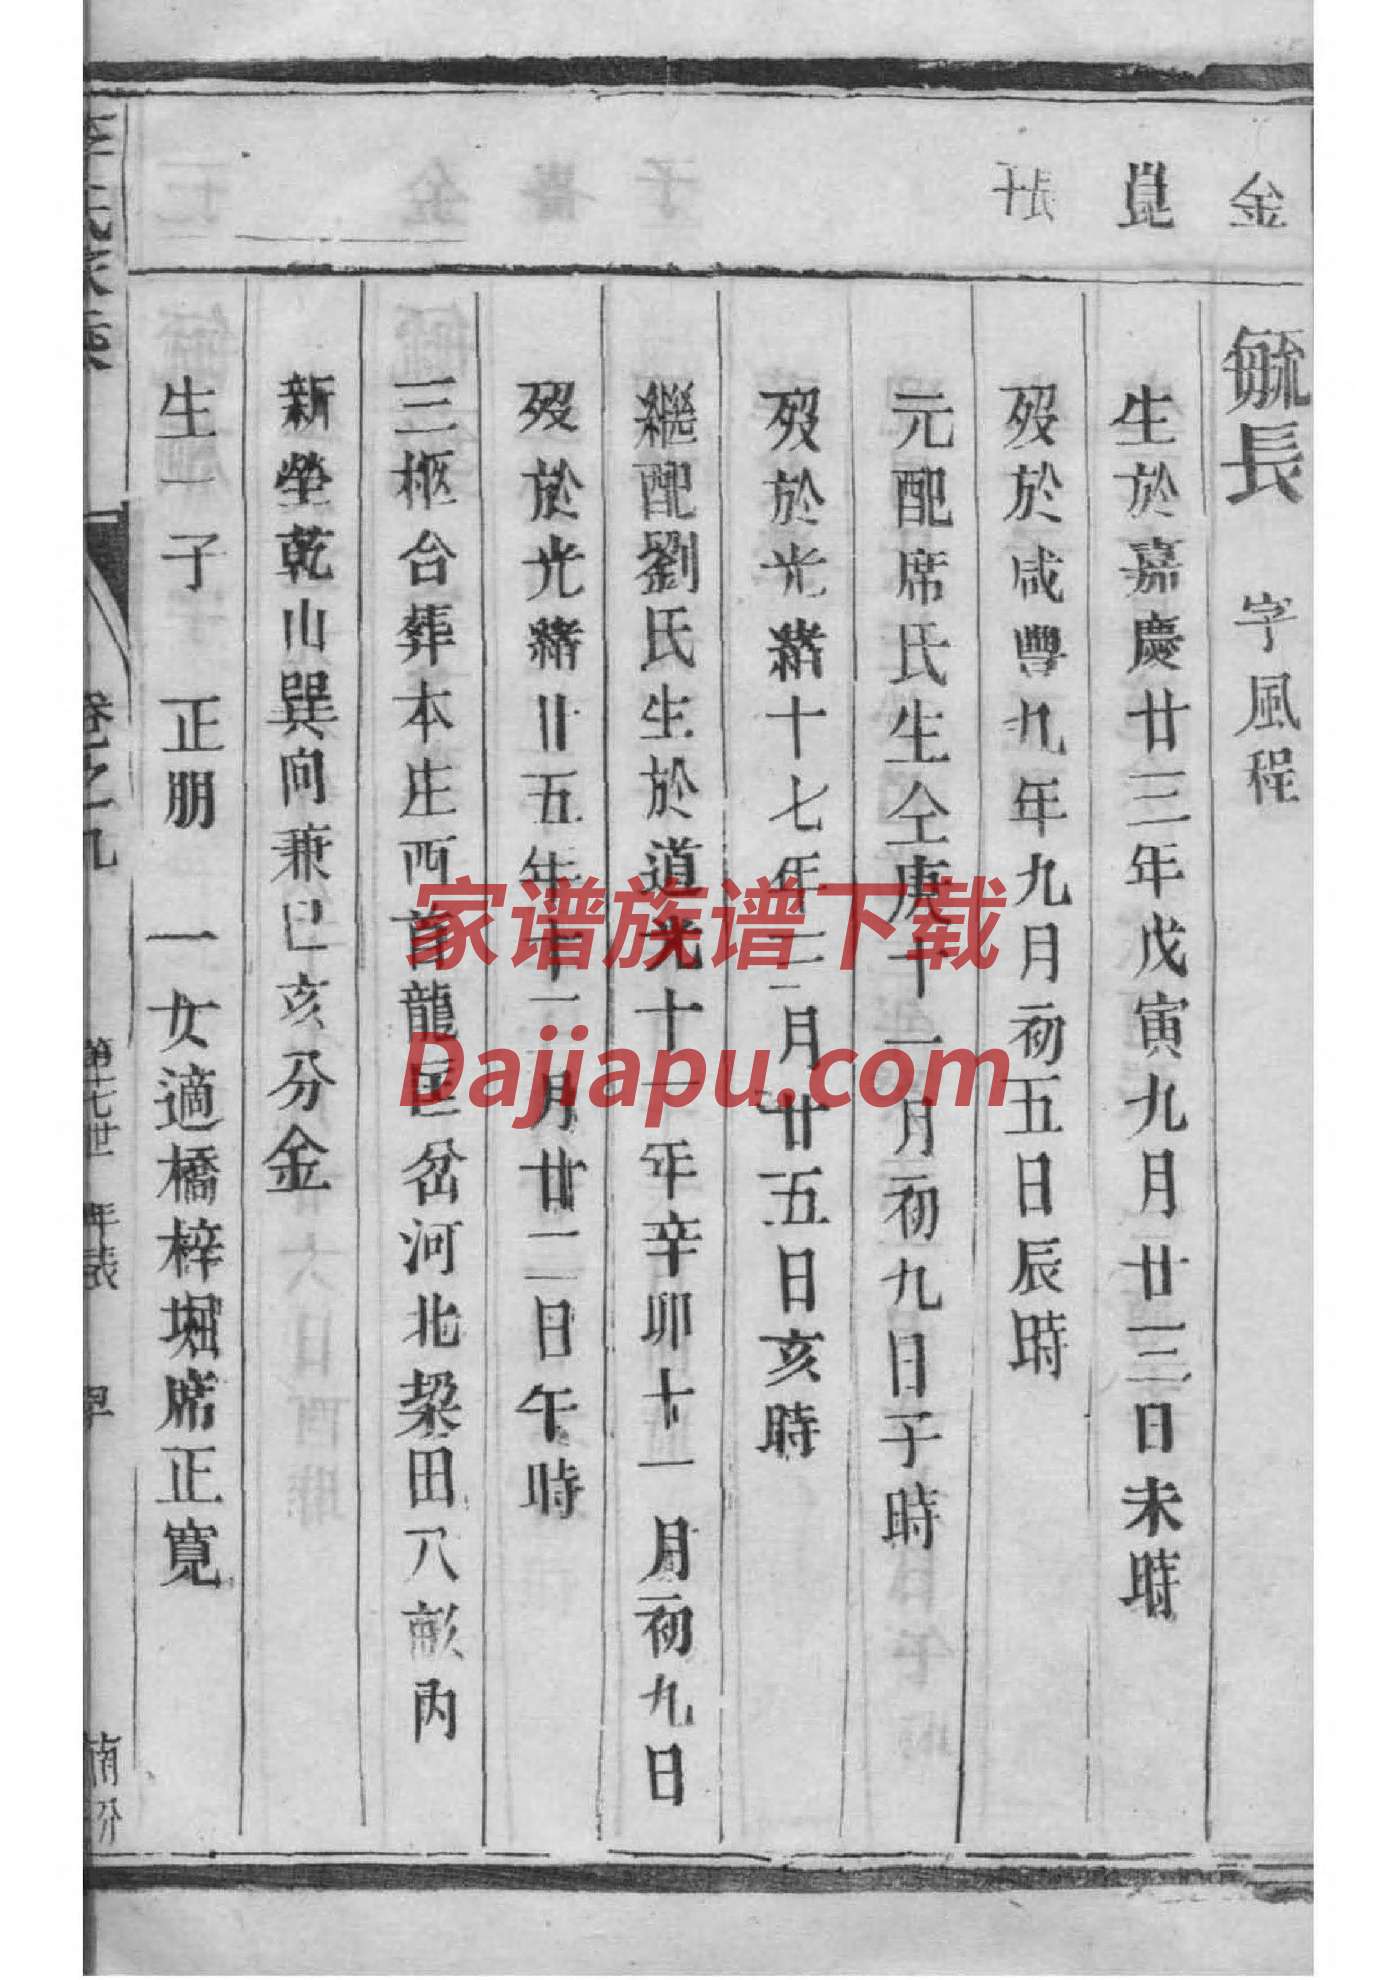 金
崑
長子
毓長 字風程
生於嘉慶廿三年戊寅九月廿三日未時
歿於咸豐九年九月初五日辰時
元配席氏生仝庚十一月初九日子時
歿於光緒十七年二月廿五日亥時
繼配劉氏生於道光十一年辛卯十一月初九日
歿於光緒廿五年十一月廿二日午時
三柩合葬本庄西首龍匡岔河北梁田八畝內
新塋乾山巽向兼巳亥分金
生一子 正朋 一女適橋梓堀席正寬
卷之九
第十七世 年表
家谱族谱下载
Dajiapu.com